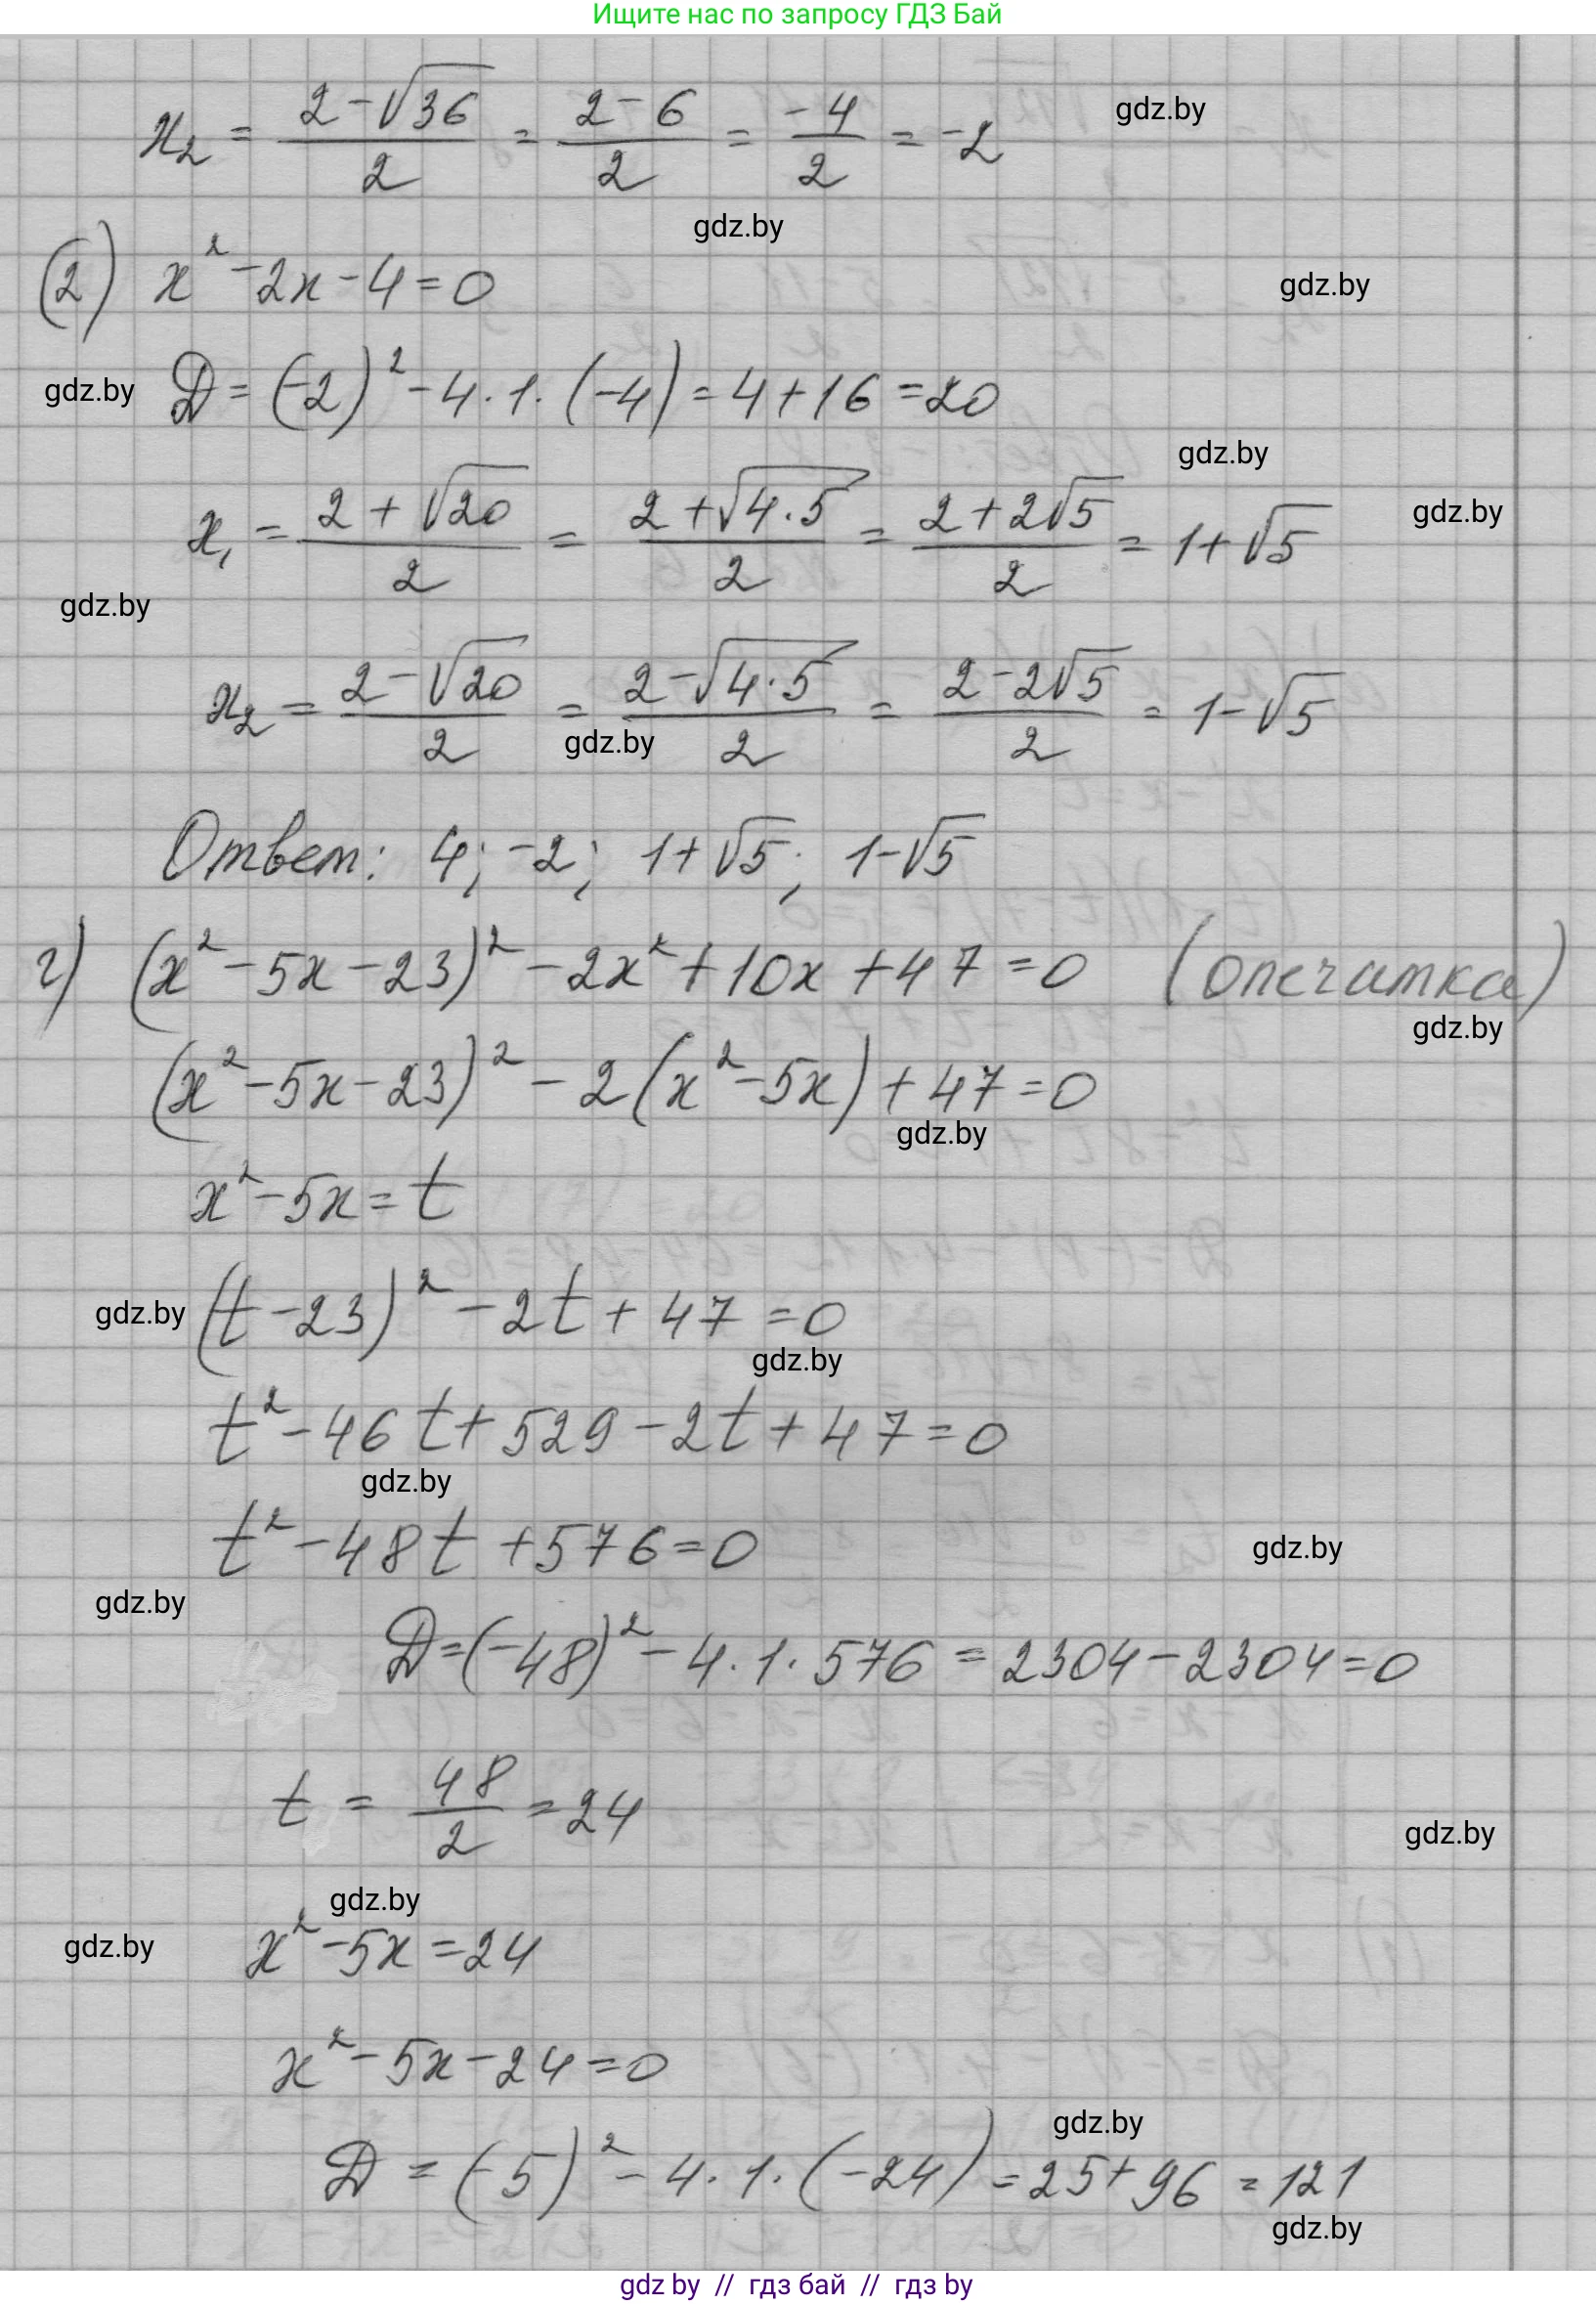 Ищите нас по запросу ГДЗ Бай
x₂ = (2-√36)/2 = (2-6)/2 = -4/2 = -2
gdz.by
gdz.by
(2) x² -2x-4=0
gdz.by
gdz.by
D = (-2)² -4·1·(-4) = 4+16 =20
gdz.by
x₁ = (2+√20)/2 = (2+√4·5)/2 = (2+2√5)/2 = 1+√5
gdz.by
gdz.by
x₂ = (2-√20)/2 = (2-√4·5)/2 = (2-2√5)/2 = 1-√5
gdz.by
Ответ: 4; -2; 1+√5; 1-√5
г) (x²-5x-23)² -2x²+10x+47=0 (опечатка)
gdz.by
(x²-5x-23)² -2(x²-5x)+47=0
gdz.by
x²-5x=t
gdz.by
(t-23)² -2t+47=0
gdz.by
t²-46t+529-2t+47=0
gdz.by
t²-48t+576=0
gdz.by
gdz.by
D=(-48)²-4·1·576=2304-2304=0
t = 48/2 = 24
gdz.by
gdz.by
gdz.by
x²-5x=24
x²-5x-24=0
gdz.by
D = (-5)² -4·1·(-24)=25+96=121
gdz.by
gdz by // гдз бай // гдз by